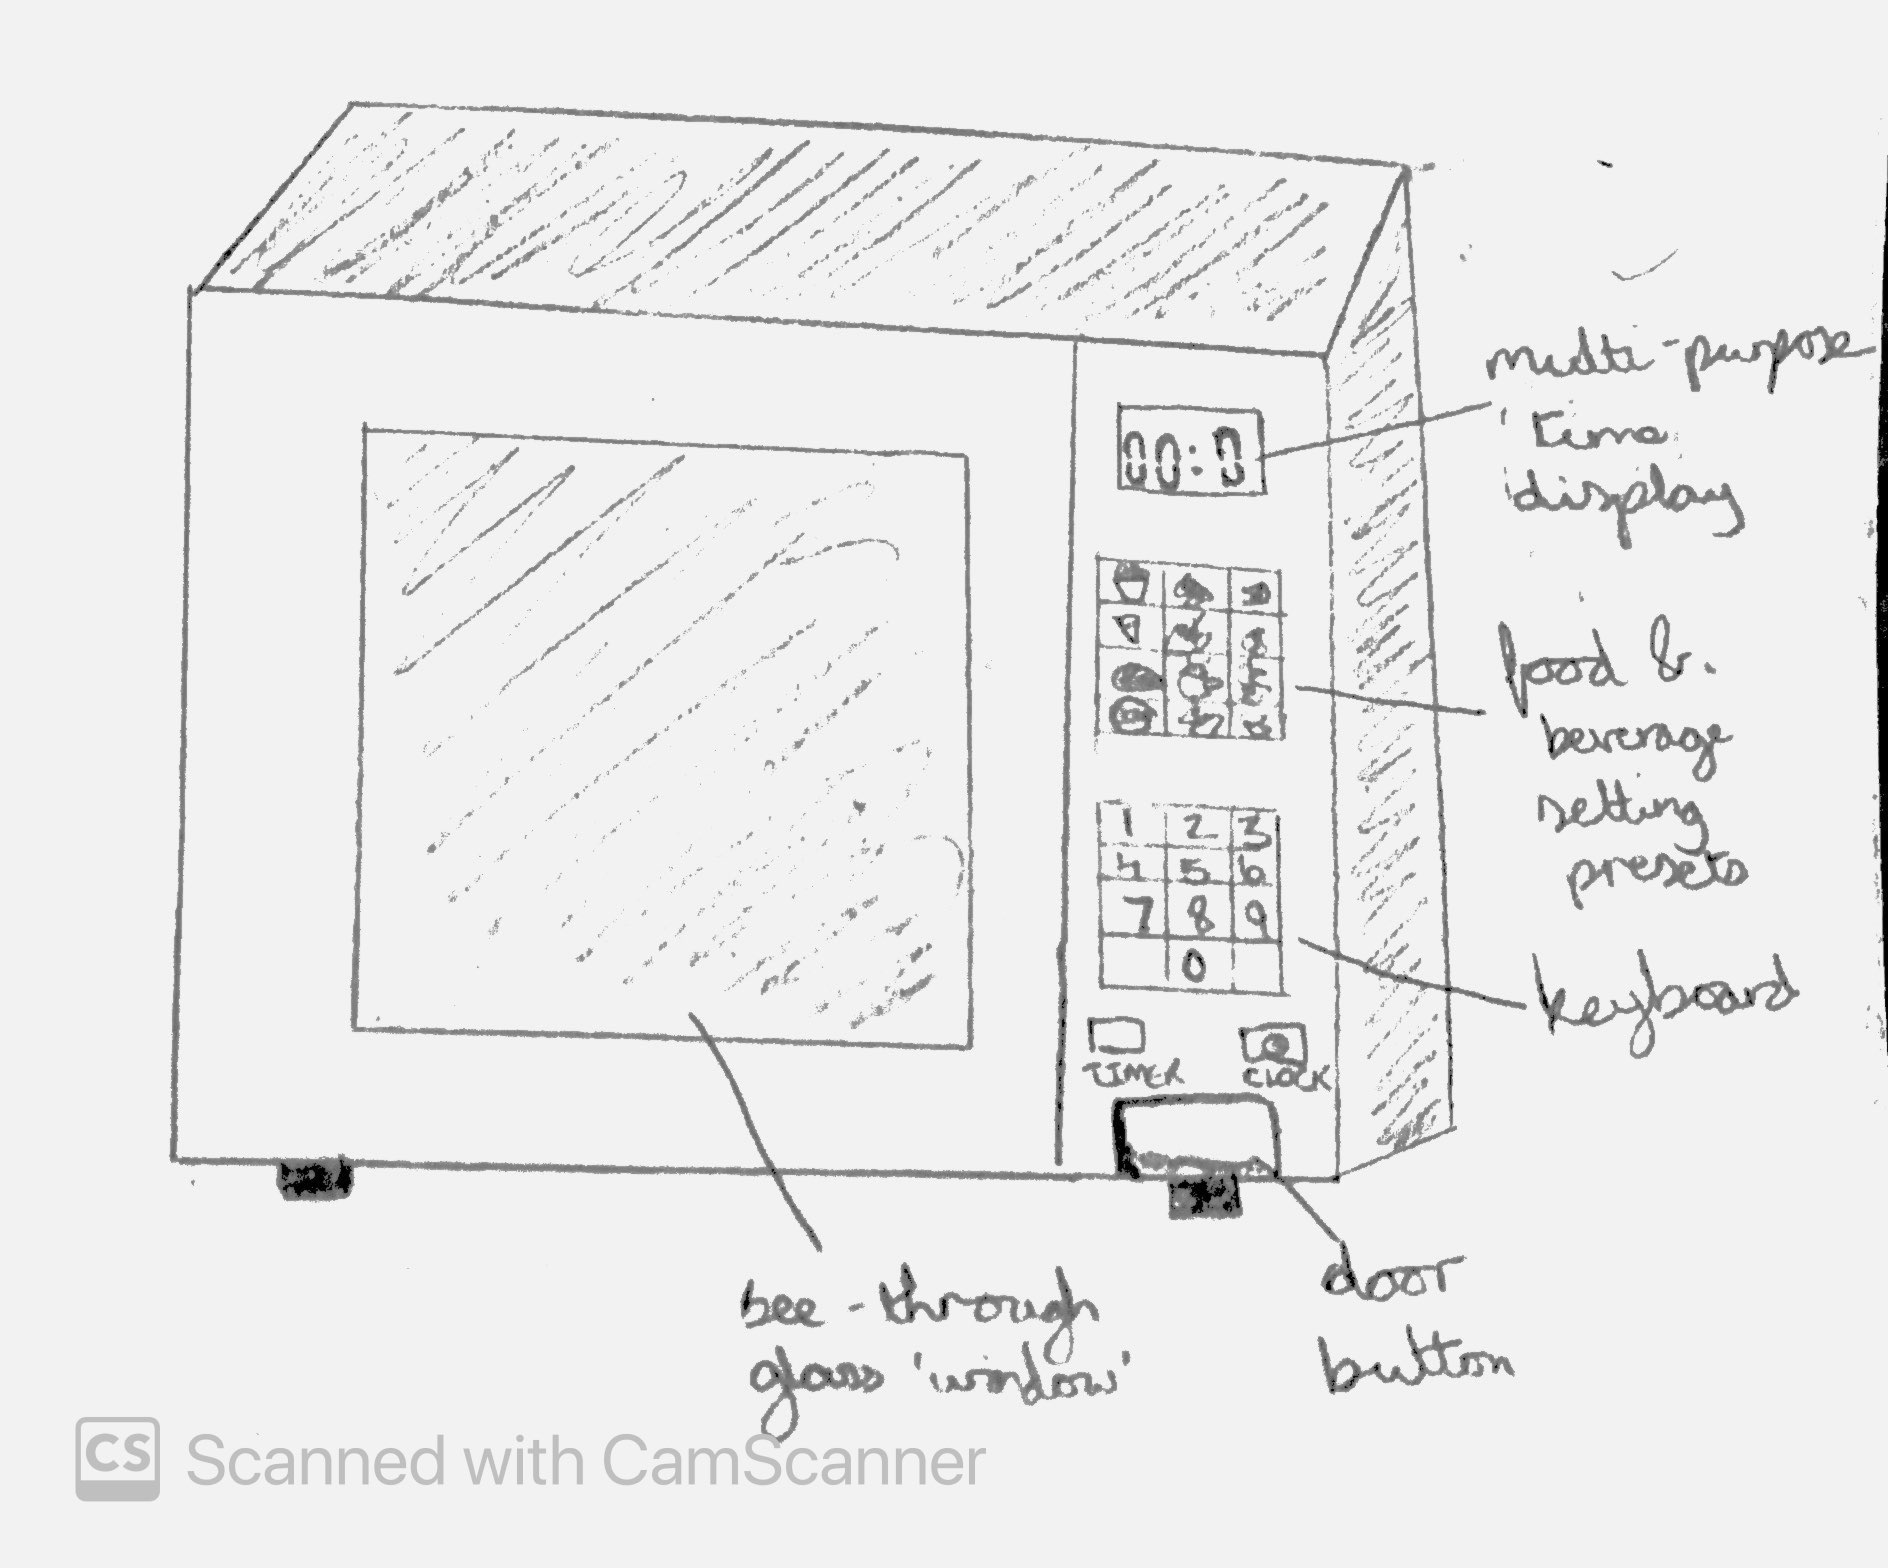 multi-purpose
time
display
00:0
food &
beverage
setting
presets
1 2 3
4 5 6
7 8 9
0
keyboard
TIMER CLOCK
door
button
see-through
glass 'window'
CS Scanned with CamScanner